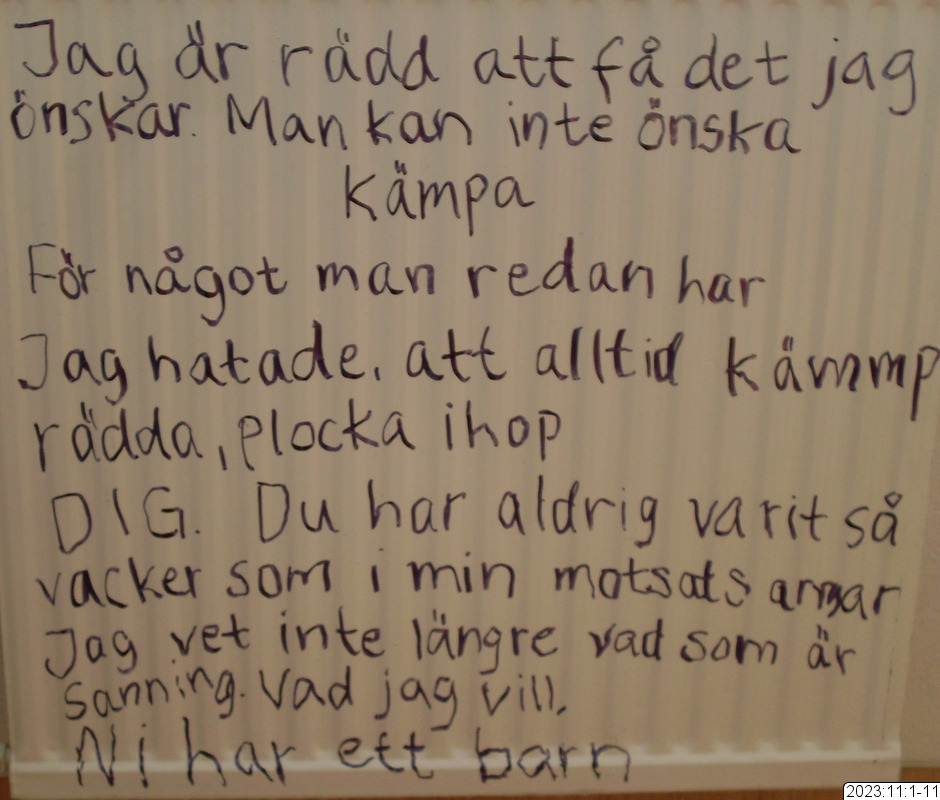 Jag är rädd att få det jag
önskar. Man kan inte önska
kämpa
För något man redan har
Jag hatade. att alltid kämmp
rädda, plocka ihop
DIG. Du har aldrig varit så
vacker som i min motsats armar
Jag vet inte längre vad som är
sanning. Vad jag vill.
Ni har ett barn
2023:11:1-11